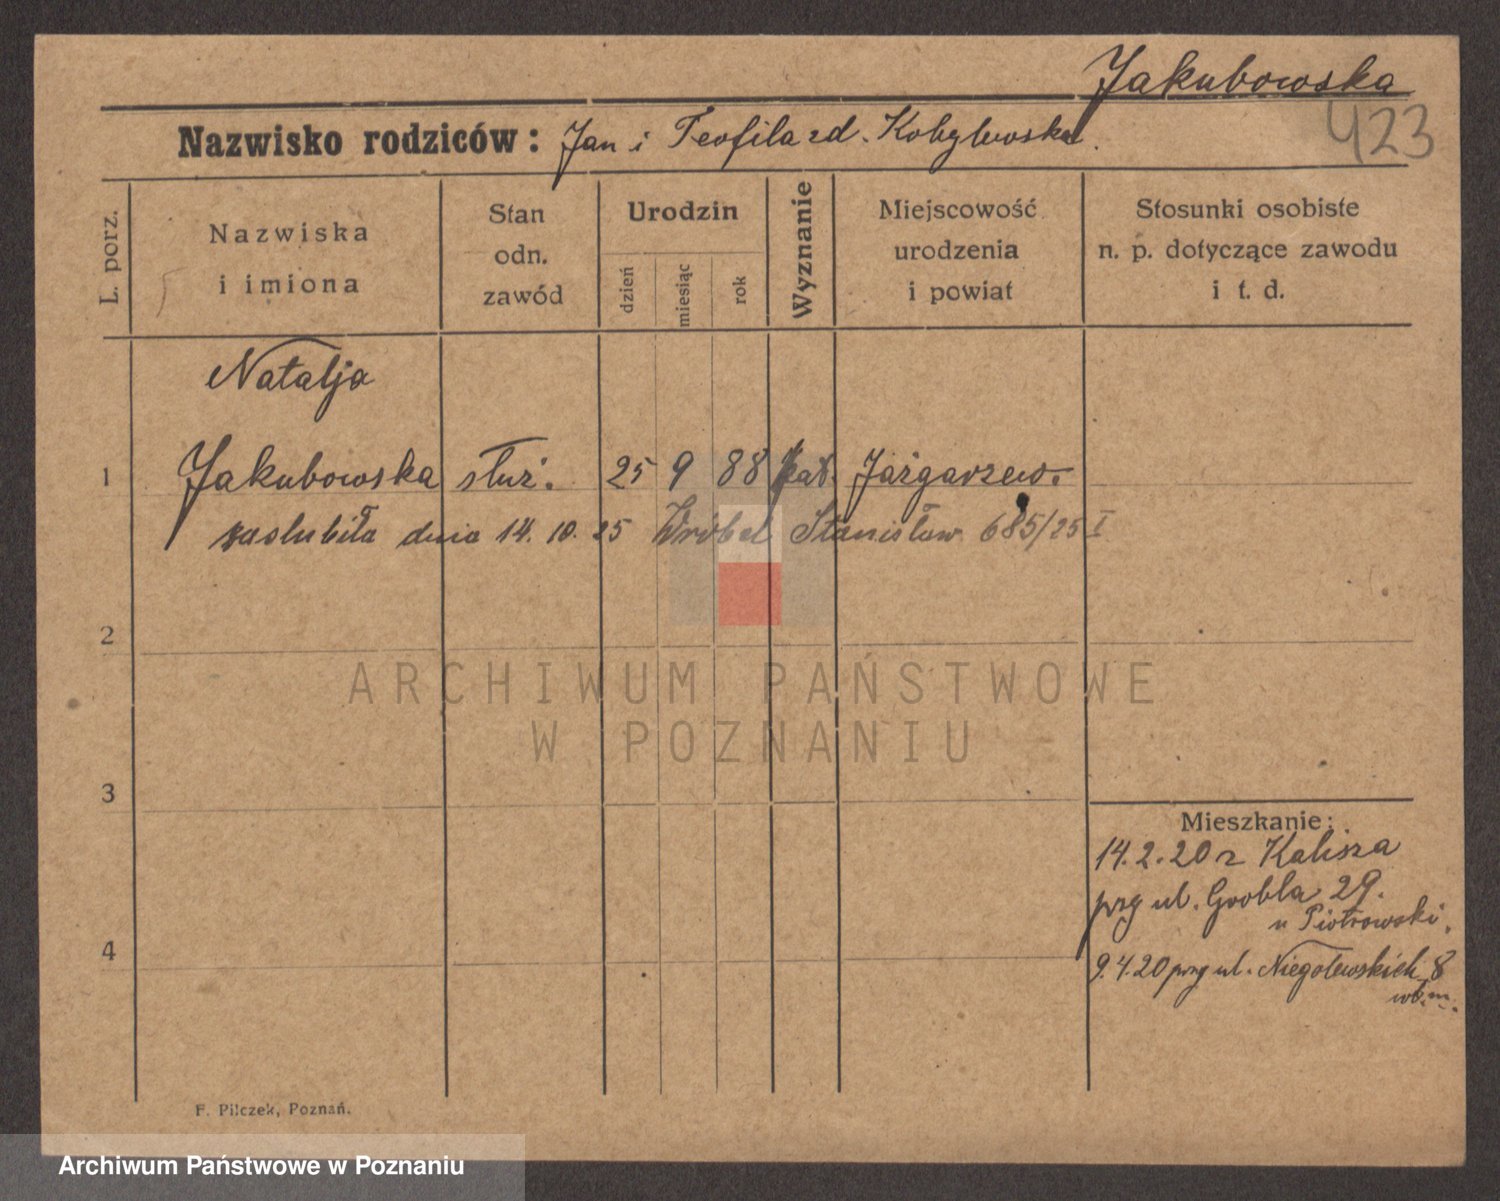 Jakubowska
423
Nazwisko rodziców: Jan i Teofila zd. Kobylewska.
L. porz.
Nazwiska
i imiona
Stan
odn.
zawód
Urodzin
dzień
miesiąc
rok
Wyznanie
Miejscowość
urodzenia
i powiat
Stosunki osobiste
n. p. dotyczące zawodu
i t. d.
Natalja
1 Jakubowska służ. 25 9 88 kat. Jażgarzew.
zaslubiła dnia 14. 10. 25 Wróbel Stanisław 685/25 I
2
ARCHIWUM PAŃSTWOWE
W POZNANIU
3
Mieszkanie:
14.2.20 z Kalisza
prg ul. Grobla 29.
u Piotrowski.
4
9.4.20 prg ul. Niegolewskich 8
wł. m.
F. Pilczek, Poznań.
Archiwum Państwowe w Poznaniu